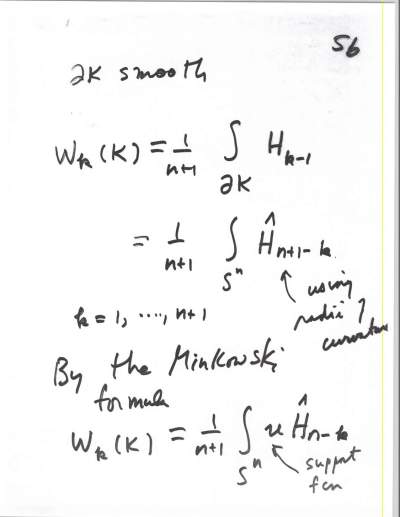 56
∂K smooth
W_k(K) = 1/(n+1) ∫_{∂K} H_{k-1}
= 1/(n+1) ∫_{S^n} Ĥ_{n+1-k}
using
radii of
curvature
k = 1, ...., n+1
By the Minkowski
formula
W_k(K) = 1/(n+1) ∫_{S^n} u Ĥ_{n-k}
support
fcn